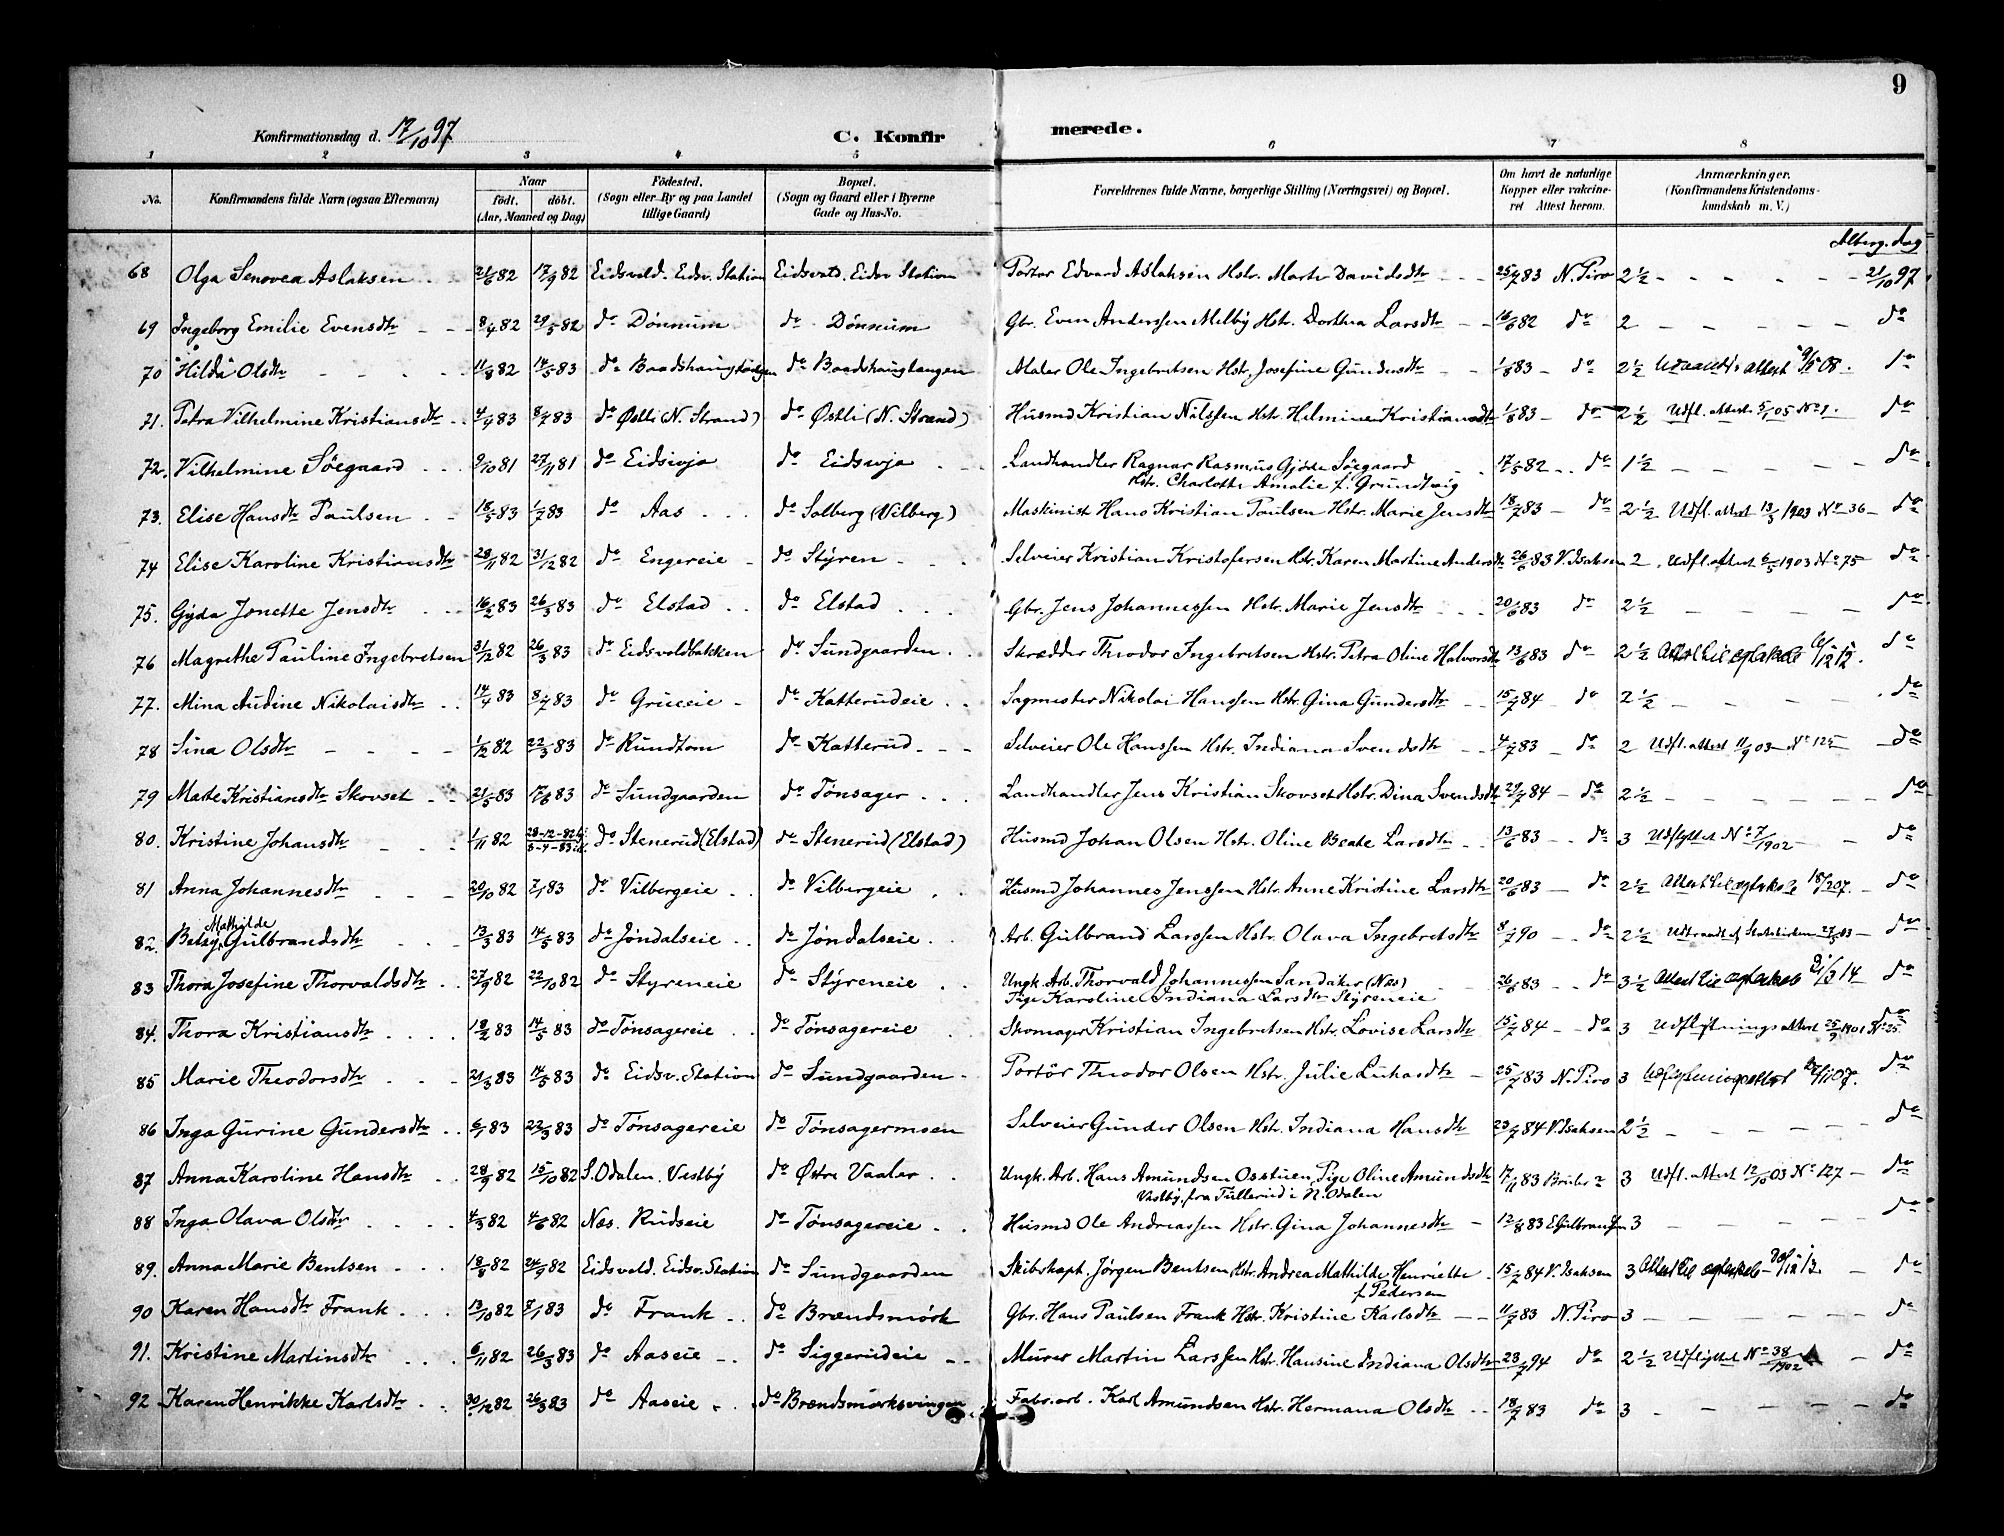 9
Konfirmationsdag d. 17/10 97 C. Konfirmerede.
1 2 3 4 5 6 7 8
No. Konfirmandens fulde Navn (ogsaa Efternavn) Naar født. døbt. (Aar, Maaned og Dag) Fødested. (Sogn eller By og paa Landet tillige Gaard) Bopæl. (Sogn og Gaard eller i Byerne Gade og Hus-No. Forældrenes fulde Navne, borgerlige Stilling (Næringsvei) og Bopæl. Om havt de naturlige Kopper eller vaccineret Attest herom. Anmærkninger. (Konfirmandens Kristendomskundskab m. V.)
Alterg. dag
68 Olga Senovea Aslaksen 21/6 82 17/9 82 Eidsvold. Eidsv. Station Eidsvold. Eidsv Station Portør Edvard Aslaksen Hstr. Marte Davidsdtr 25/7 83 N. Piro 2 1/2 21/10 97
69 Ingeborg Emilie Evensdtr 8/4 82 29/5 82 do Dönnum do Dönnum Gbr. Even Anderssen Melby Hstr. Dorthea Larsdtr 16/6 82 do 2 do
70 Hilda Olsdtr 11/8 82 14/5 83 do Baadshaugtangen do Baadshaugtangen Maler Ole Ingebretsen Hstr. Josefine Gundersdtr 1/8 83 do 2 1/2 08. do
71. Petra Vilhelmine Kristiansdtr 4/4 83 8/7 83 do Østli (N. Strand) do Østli (N. Strand) Husmd Kristian Nilssen Hstr. Helmine Kristiansdtr 1/8 83 do 2 1/2 Udfl. attest 5/1 05 No 1. do
72. Vilhelmine Söegaard 9/10 81 27/11 81 do Eidsvoja do Eidsvoja Landhandler Ragnar Rasmus Gjöde Söegaard 17/5 82 do 1 1/2 do
Hstr. Charlotte Amalie f. Grundtvig
73. Elise Hansdtr Paulsen 18/5 83 1/7 83 do Aas do Solberg (Vilberg) Maskinist Hans Kristian Paulsen Hstr. Marie Jensdtr 18/7 83 do 2 1/2 Udfl. attest 13/3 1903 No 36 do
74 Elise Karoline Kristiansdtr 28/11 82 31/12 82 do Engereie do Stÿren Selveier Kristian Kristofersen Hstr. Karen Martine Andersdtr 26/6 83 V. Isaksen 2 Udfl. attest 6/5 1903 No 75 do
75. Gyda Jonette Jensdtr 16/2 83 26/3 83 do Elstad do Elstad Gbr. Jens Johannessen Hstr. Marie Jensdtr 20/6 83 do 2 1/2 do
76 Magrethe Pauline Ingebretsen 31/12 82 26/3 83 do Eidsvoldbakken do Sundgaarden Skrædder Theodor Ingebretsen Hstr. Petra Oline Halvorsdtr 13/6 83 do 2 1/2 Attest til ægteskab 6/12 12. do
77. Mina Audine Nikolaisdtr 14/4 83 8/7 83 do Grueeie do Katterudeie Sagmester Nikolai Hanssen Hstr. Gina Gundersdtr 15/7 84 do 2 1/2 do
78 Sina Olsdtr 1/12 82 22/3 83 do Rundtom do Katterud Selveier Ole Hanssen Hstr. Indiana Svendsdtr 4/7 83 do 2 Udfl. attest 11/9 03 No 125 do
79 Marte Kristiansdtr Skovset 21/5 83 17/6 83 do Sundgaarden do Tönsager Landhandler Jens Kristian Skovset Hstr. Dina Svendsdtr 29/7 84 do 2 1/2 do
80. Kristine Johansdtr 1/11 82 28-12-82 do Stenerud (Elstad) do Stenerud (Elstad) Husmd Johan Olsen Hstr. Oline Beate Larsdtr 13/6 83 do 3 Udflyttet No 7/1902 do
81 Anna Johannesdtr 20/10 82 7/1 83 do Vilbergeie do Vilbergeie Husmd Johannes Jenssen Hstr. Anne Kristine Larsdtr 20/6 83 do 2 1/2 Attest til ægteskab 18/2 07. do
82. Betzy Mathilde Gulbrandsdtr 13/3 83 14/5 83 do Jöndalseie do Jöndalseie Arb. Gulbrand Larssen Hstr. Olava Ingebretsdtr 8/7 90 do 2 1/2 Udtraadt af Statskirken 27/5 03 do
83 Thora Josefine Thorvaldsdtr 27/9 82 22/10 82 do Styreneie do Stÿreneie Ungk. Arb. Thorvald Johannessen Sandaker (Næs) 26/6 83 do 3 1/2 Attest til ægteskab 21/3 14 do
Pige Karoline Indiana Larsdtr Styreneie
84. Thora Kristiansdtr 18/2 83 14/5 83 do Tönsagereie do Tönsagereie Skomager Kristian Ingebretsen Hstr. Lovise Larsdtr 15/7 84 do 3 Udflytnings attest 25/9 1901 No 25. do
85 Marie Theodorsdtr 21/3 83 14/5 83 do Eidsv. Station do Sundgaarden Portör Theodor Olsen Hstr. Julie Lukasdtr 25/7 83 N. Piro 3 07. do
86 Inga Gurine Gundersdtr 6/1 83 22/3 83 do Tönsagereie do Tönsagermoen Selveier Gunder Olsen Hstr. Indiana Hansdtr 23/7 84 V. Isaksen 2 1/2 do
87 Anna Karoline Hansdtr 28/9 82 15/10 82 S. Odalen. Vestby do Østre Vaaler Ungk. Arb. Hans Amundsen Osstuen, Pige Oline Amundsdtr 17/11 83 3 Udfl. attest 12/10 03 No 127 do
Vestby, fra Tullerud i N. Odalen
88 Inga Olava Olsdtr 4/3 82 4/6 82 Næs. Rudseie do Tönsagereie Husmd Ole Andreassen Hstr. Gina Johannesdtr 12/8 83 E Gulbransen 3 do
89. Anna Marie Bentsen 18/8 82 24/9 82 Eidsvold. Eidsv. Station do Sundgaarden Skibskapt. Jørgen Bentsen Hstr. Andrea Mathilde Henriette 15/7 84 V. Isaksen 3 Attest til ægteskab 20/12 13. do
f. Pedersen
90 Karen Hansdtr Frank 13/10 82 7/1 83 do Frank do Brændsmörk Gbr. Hans Paulsen Frank Hstr. Kristine Karlsdtr 11/7 83 N. Piro 3 do
91. Kristine Martinsdtr 6/11 82 26/3 83 do Aaseie do Siggerudeie Murer Martin Larssen Hstr. Hansine Indiana Olsdtr 23/7 94 do 2 1/2 Udflyttet No 38/1902 do
92 Karen Henrikke Karlsdtr 30/12 82 26/3 83 do Aaseie do Brændsmörksvingen Fabr. arb. Karl Amundsen Hstr. Hermana Olsdtr 18/7 83 do 3 do